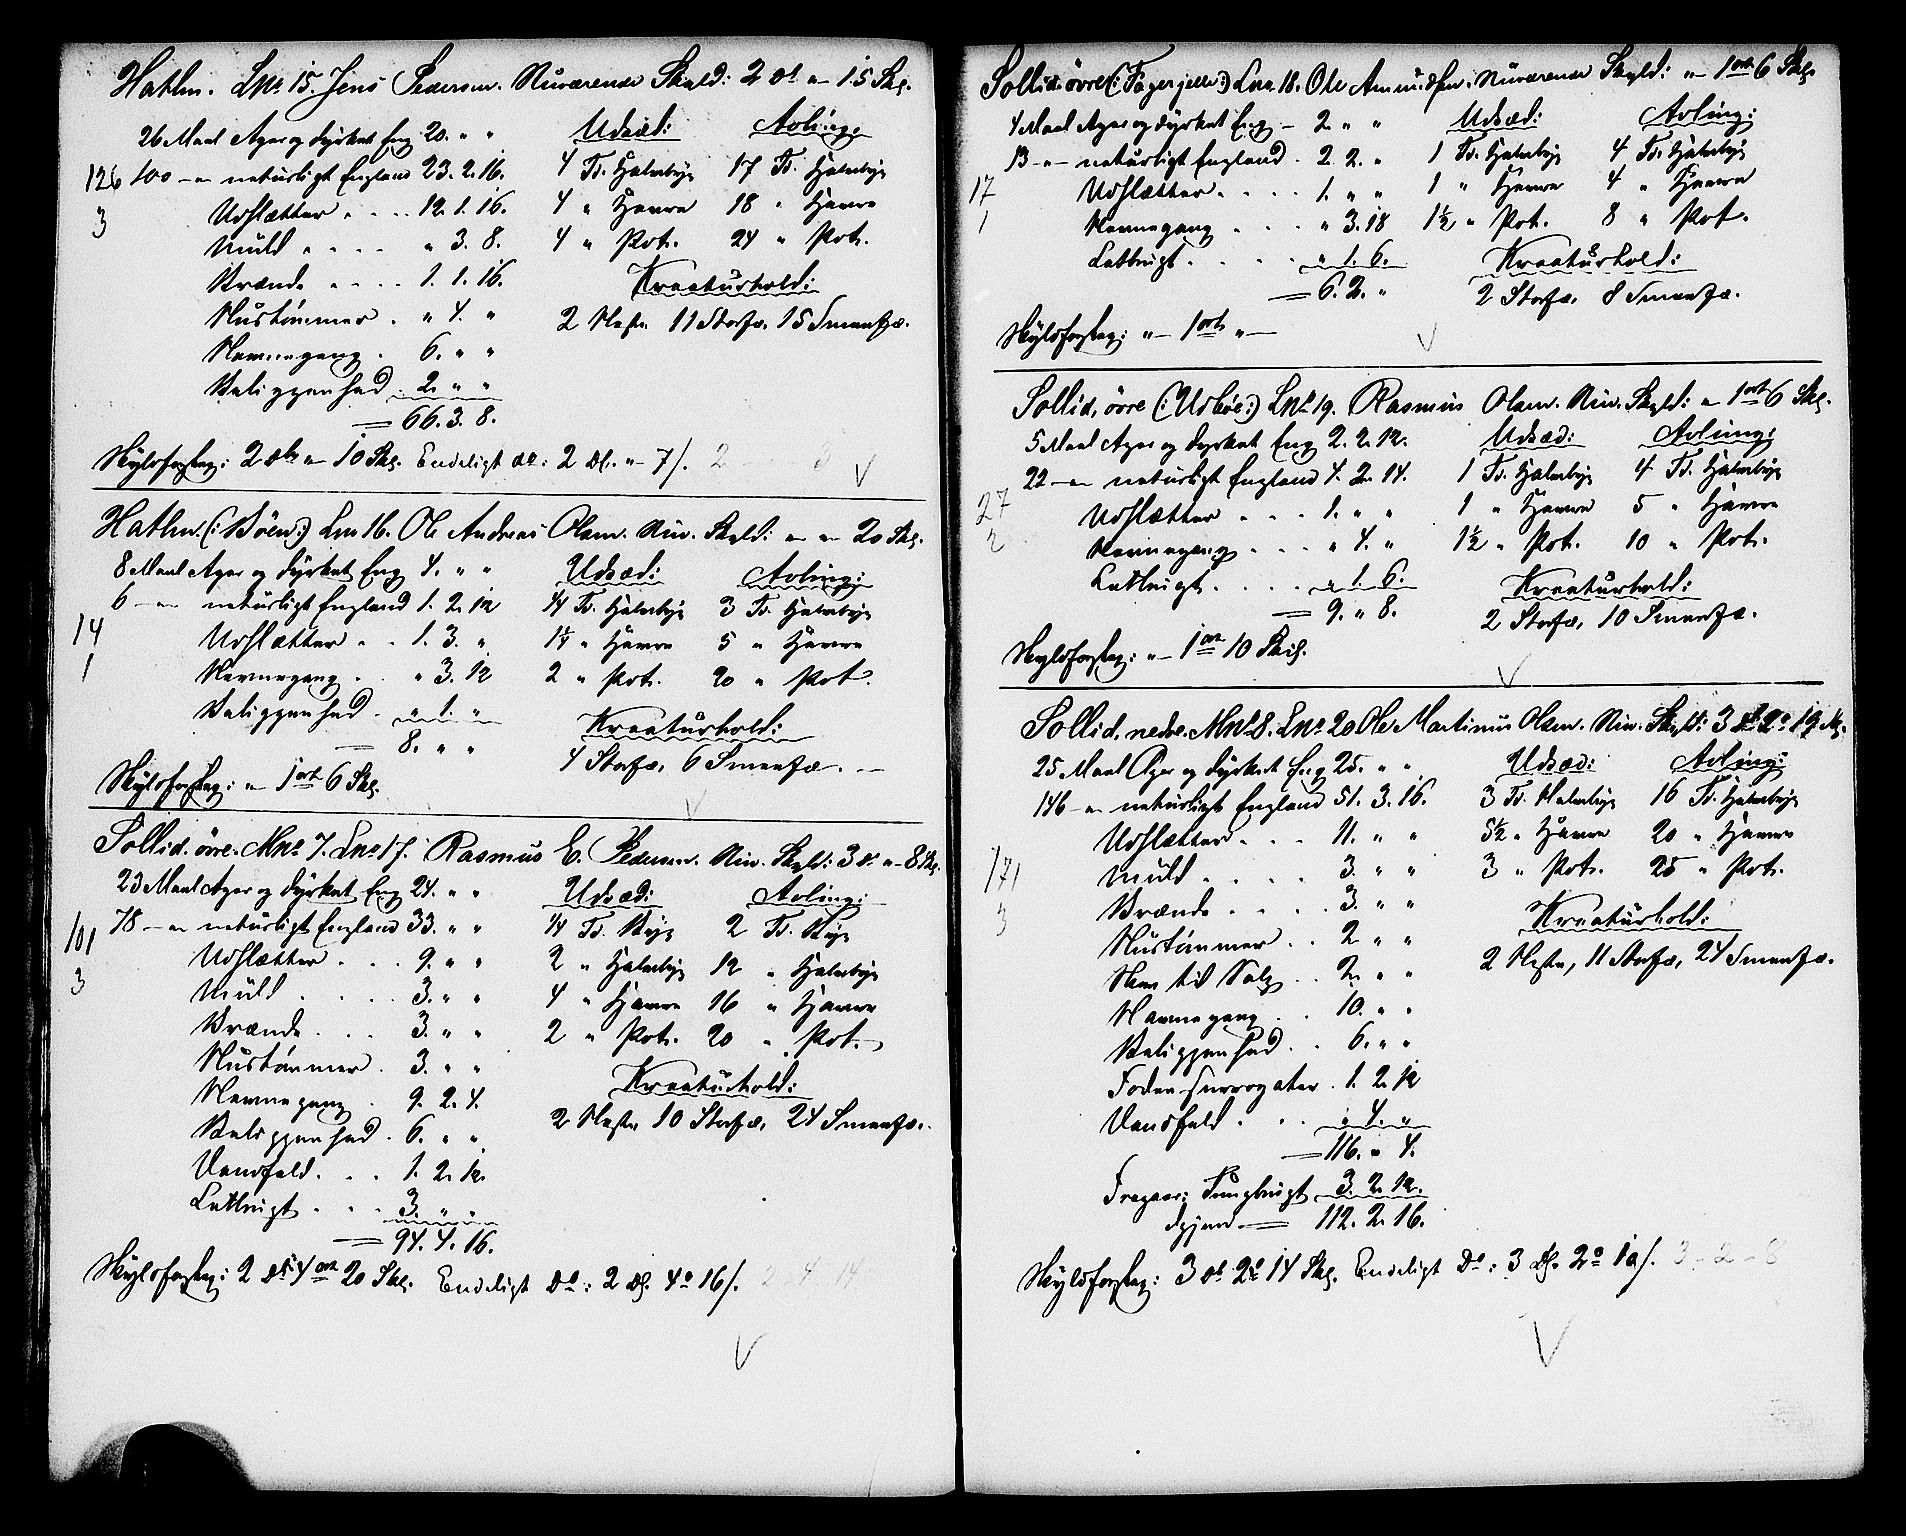 Hatlen. Lno 15. Jens Pedersen. Nuværende Skyld: 2 D " 15 Skg.
26 Maal Ager og dyrket Eng 20. " " Udsæd: Avling:
126 100 — " — naturligt England 23. 2. 16. 4 Td. Halmbyg 17 Td. Halmbyg
3 Udslætter . . . . 12. 1. 16. 4 " Havre 18 " Havre
Muld . . . . " 3. 8. 4 " Pot. 24 " Pot.
Brænde . . . . 1. 1. 16. Kreaturhold:
Hustømmer . " 4. " 2 Heste 11 Storfæ, 15 Smaafæ.
Havnegang . 6. " "
Beliggenhed . 2. " "
= 66. 3. 8.
Skyldforslag: 2 Dlr " 10 Skg. Endeligt do: 2 D. " 7 s. 2
Hatlen (: Bøen:) Lno 16. Ole Andreas Olsen. Nuv. Skyld: " " 20 Skg.
8 Maal Ager og dyrket Eng 4. " " Udsæd: Avling:
6 — " naturligt England 1. 2. 12 1/4 Td. Halmbyg 3 Td. Halmbyg
14 Udslætter . . 1. 3. " 1 1/4 " Havre 5 " Havre
1 Havnegang . . " 3. 12 2 " Pot. 20 " Pot.
Beliggenhed . " 1. " Kreaturhold:
= 8. " " 4 Storfæ, 6 Smaafæ.
Skyldforslag: " 1 ort 6 Skg.
Sollid. øvre. Mno 7. Lno 17. Rasmus E. Pedersen. Nuv. Skyld: 3 D " 8 Skg.
23 Maal Ager og dyrket Eng 24. " " Udsæd: Avling:
78 — " naturligt England 33. " " 1/4 Td. Byg 2 Td. Byg
101 Udslætter . . . 9. " " 2 " Halmbyg 12 " Halmbyg
3 Muld . . . . 3. " " 4 " Havre 16 " Havre
Brænde . . . 3. " " 2 " Pot. 20 " Pot.
Hustømmer . 3. " " Kreaturhold:
Havnegang . 9. 2. 4. 2 Heste 10 Storfæ, 24 Smaafæ.
Beliggenhed . 6. " "
Vandfald . . . 1. 2. 12.
Letbrugt . . . 3. " "
= 94. 4. 16.
Skyldforslag: 2 D 4 ort 20 Skg. Endeligt Do: 2 D. 4 o 16 s. 2 4 14
Sollid. øvre (: Fagerjelle:) Lno 18. Ole Amundsen. Nuværende Skyld: " 1 ort 6 Skg.
4 Maal Ager og dyrket Eng — 2. " " Udsæd: Avling:
13 — " — naturligt England . 2. 2. " 1 Td. Halmbyg 4 Td. Halmbyg
17 Udslætter . . . . 1. " " 1 " Havre 4 " Havre
1 Havnegang . . . " 3. 18 1 1/2 " Pot. 8 " Pot.
Letbrugt . . . . " 1. 6. Kreaturhold:
= 6. 2. " 2 Storfæ, 8 Smaafæ.
Skyldforslag: " — 1 ort " —
Sollid, øvre (: Urbøe:) Lno 19. Rasmus Olsen. Nuv. Skyld: " 1 ort 6 Skg.
5 Maal Ager og dyrket Eng 2. 2. 12. Udsæd: Avling:
22 — " naturligt England 4. 2. 14. 1 Td. Halmbyg 4 Td. Halmbyg
27 Udslætter . . . 1. " " 1 " Havre 5 " Havre
2 Havnegang . . . " 4. " 1 1/2 " Pot. 10 " Pot.
Letbrugt . . . . " 1. 6. Kreaturhold:
= 9. " 8. 2 Storfæ, 10 Smaafæ.
Skyldforslag: " — 1 ort 10 Skg.
Sollid, nedre. Mno 8. Lno 20 Ole Martinus Olsen. Nuv. Skyld: 3 D 2 o 19 Skg.
25 Maal Ager og dyrket Eng 25. " " Udsæd: Avling:
146 — " naturligt England 51. 3. 16. 3 Td. Halmbyg 16 Td. Halmbyg
Udslætter . . . 11. " " 5 1/2 " Havre 20 " Havre
171 Muld . . . . 3. " " 3 " Pot. 25 " Pot.
3 Brænde . . . . 3. " " Kreaturhold:
Hustømmer . . 2 " " 2 Heste, 11 Storfæ, 24 Smaafæ.
til Salg . . 2. " "
Havnegang . . 10. " "
Beliggenhed . . 6. " "
Foder-surrogater . 1. 2. 12
Vandfald . . . " 4. "
= 116. " 4.
Fragaar: Tungbrugt 3. 2. 12.
Igjen = 112. 2. 16.
Skyldforslag: 3 D 2 o 14 Skg. Endeligt Do: 3 D. 2 o 10 s. 3 - 2 - 8